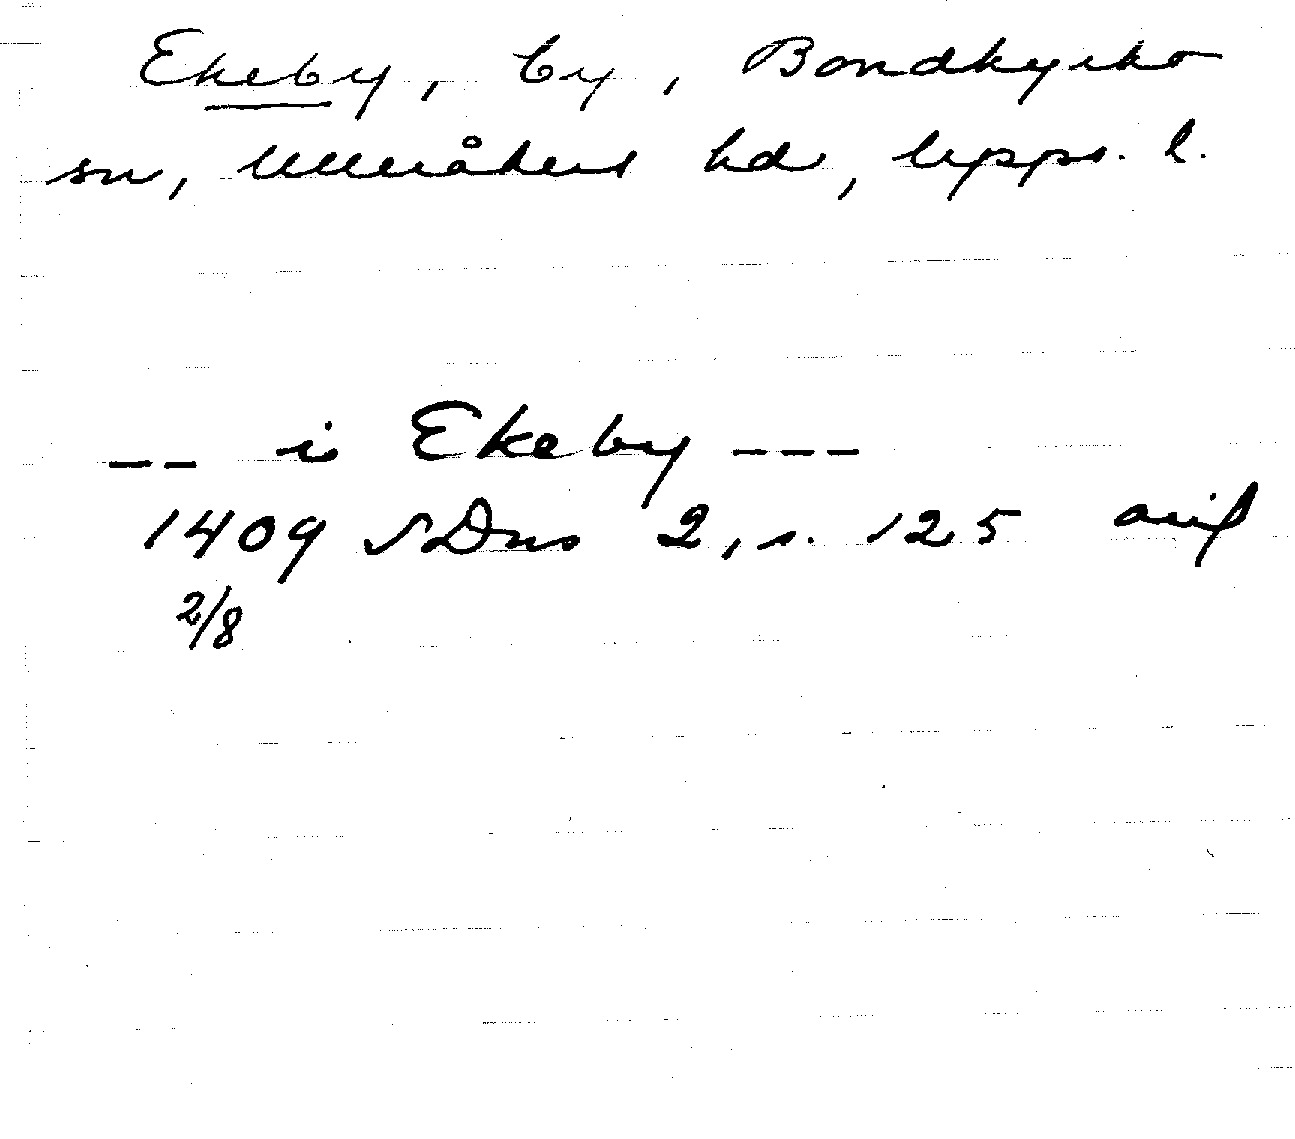 Ekeby, by, Bondkyrko
sn, Ulleråkers hd, Upps. l.
-- i Ekeby ---
1409 SDns 2, s. 125 avskr
2/8